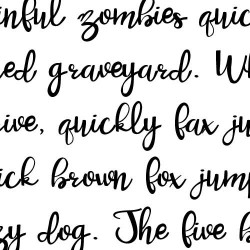 inful zombies quic
ed graveyard. W
ive, quickly fax jum
ick brown fox jump
zy dog. The five b